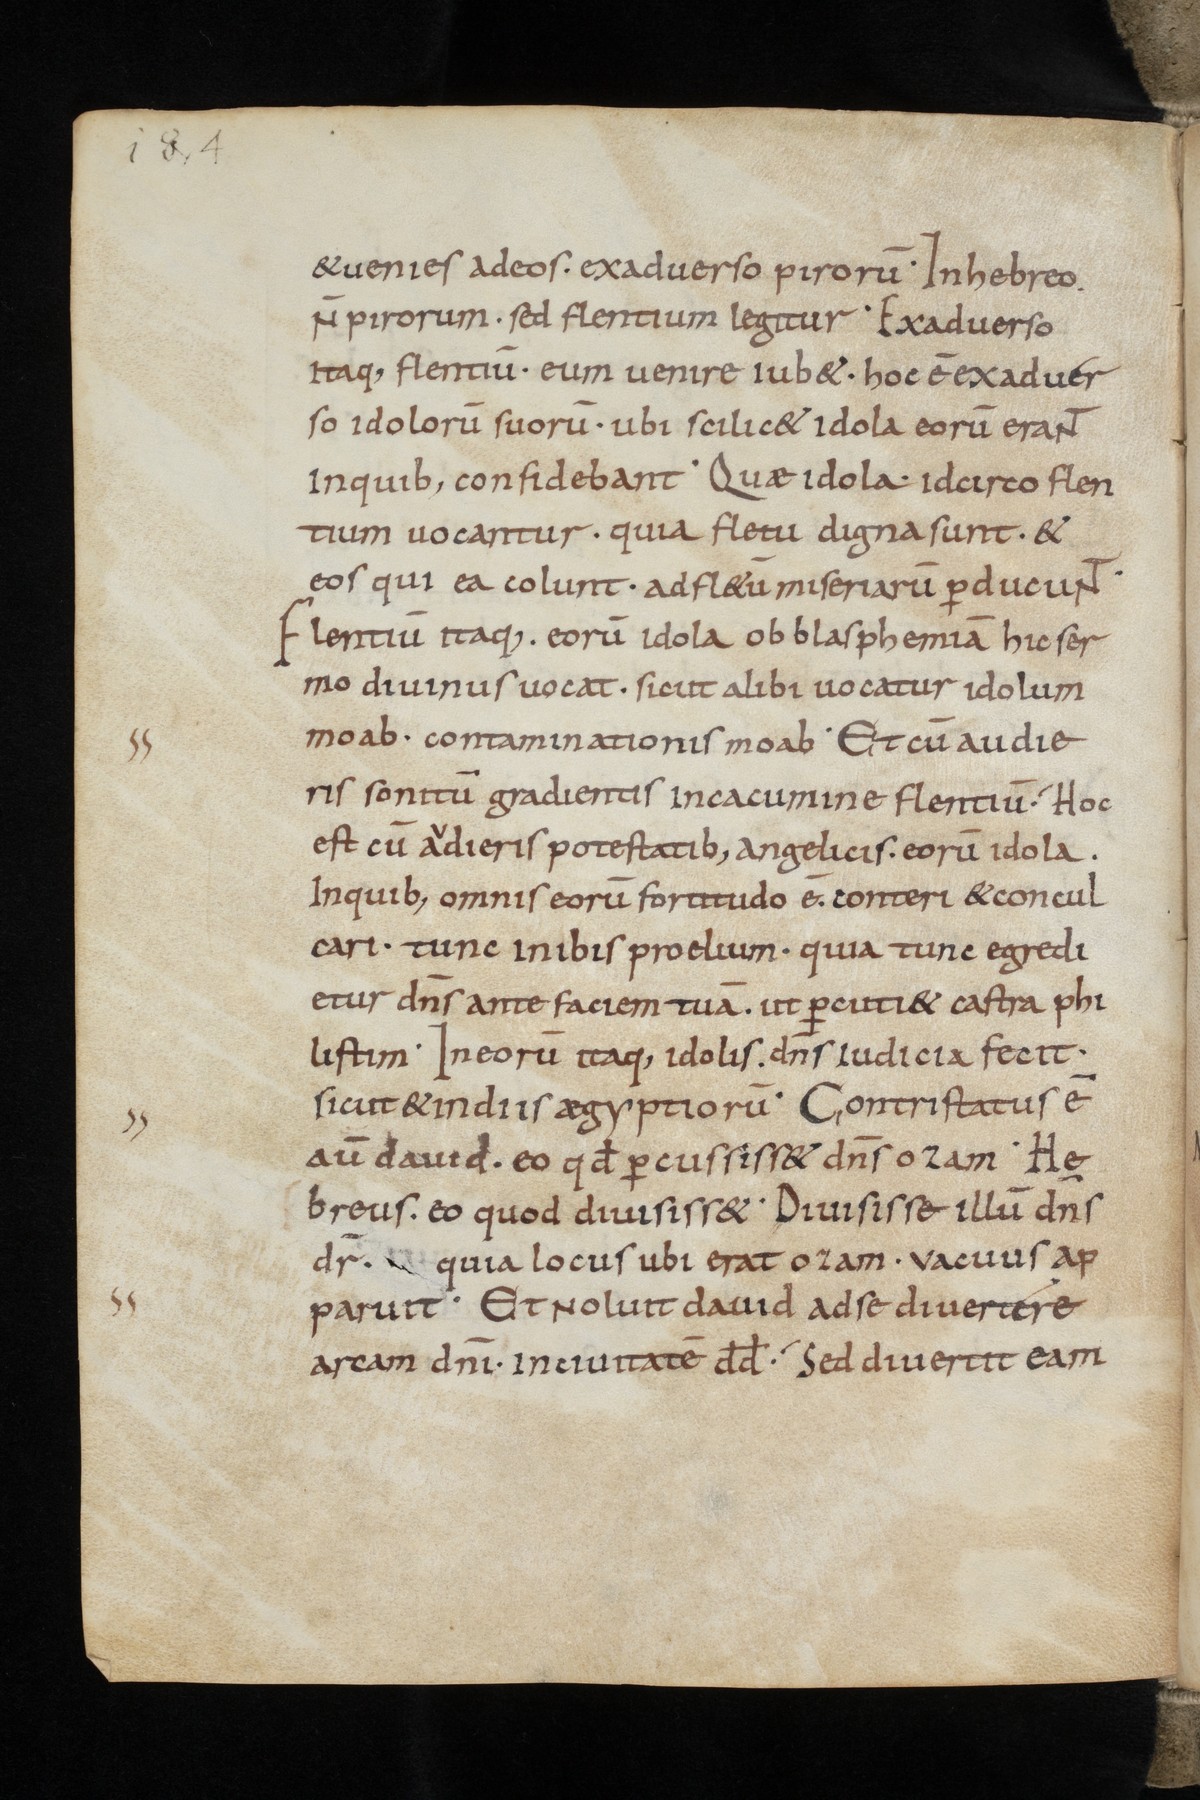 184
&uenies adeos. exaduerso pirorū· Inhebreo.
n̄ pirorum · sed flentium legitur · Exaduerso
itaq, flentiū · eum uenire iub& · hoc ē exaduer
so idolorū suorū · ubi scilic& idola eorū erant̄
inquib, confidebant · Quæ idola · idcirco flen
tium uocantur · quia fletu digna sunt · &
eos qui ea colunt · adfl&ū miseriarū ꝑducunt̄ ·
Flentiū itaq,. eorū idola ob blasphemiā hic ser
mo diuinus uocat · sicut alibi uocatur idolum
moab · contaminationis moab · Et cū audie
ris sonitū gradientis incacumine flentiū · Hoc
est cū audieris potestatib, angelicis. eorū idola .
Inquib, omnis eorū fortitudo ē. conteri & concul
cari · tunc inibis proelium · quia tunc egredi
etur dn̄s ante faciem tuā. ut ꝑcuti& castra phi
listim · In eorū itaq, idolis. dn̄s iudicia fecit ·
sicut & indiis ægyptiorū · Contristatus ē
aū dauid. eo qđ ꝑcussiss& dn̄s ozam · He
breus. eo quod diuisiss& · Diuisisse illū dn̄s
dr̄. quia locus ubi erat ozam · vacuus ap
paruit · Et noluit dauid adse diuertere
arcam dn̄i · inciuitatē đđ · Sed diuertit eam